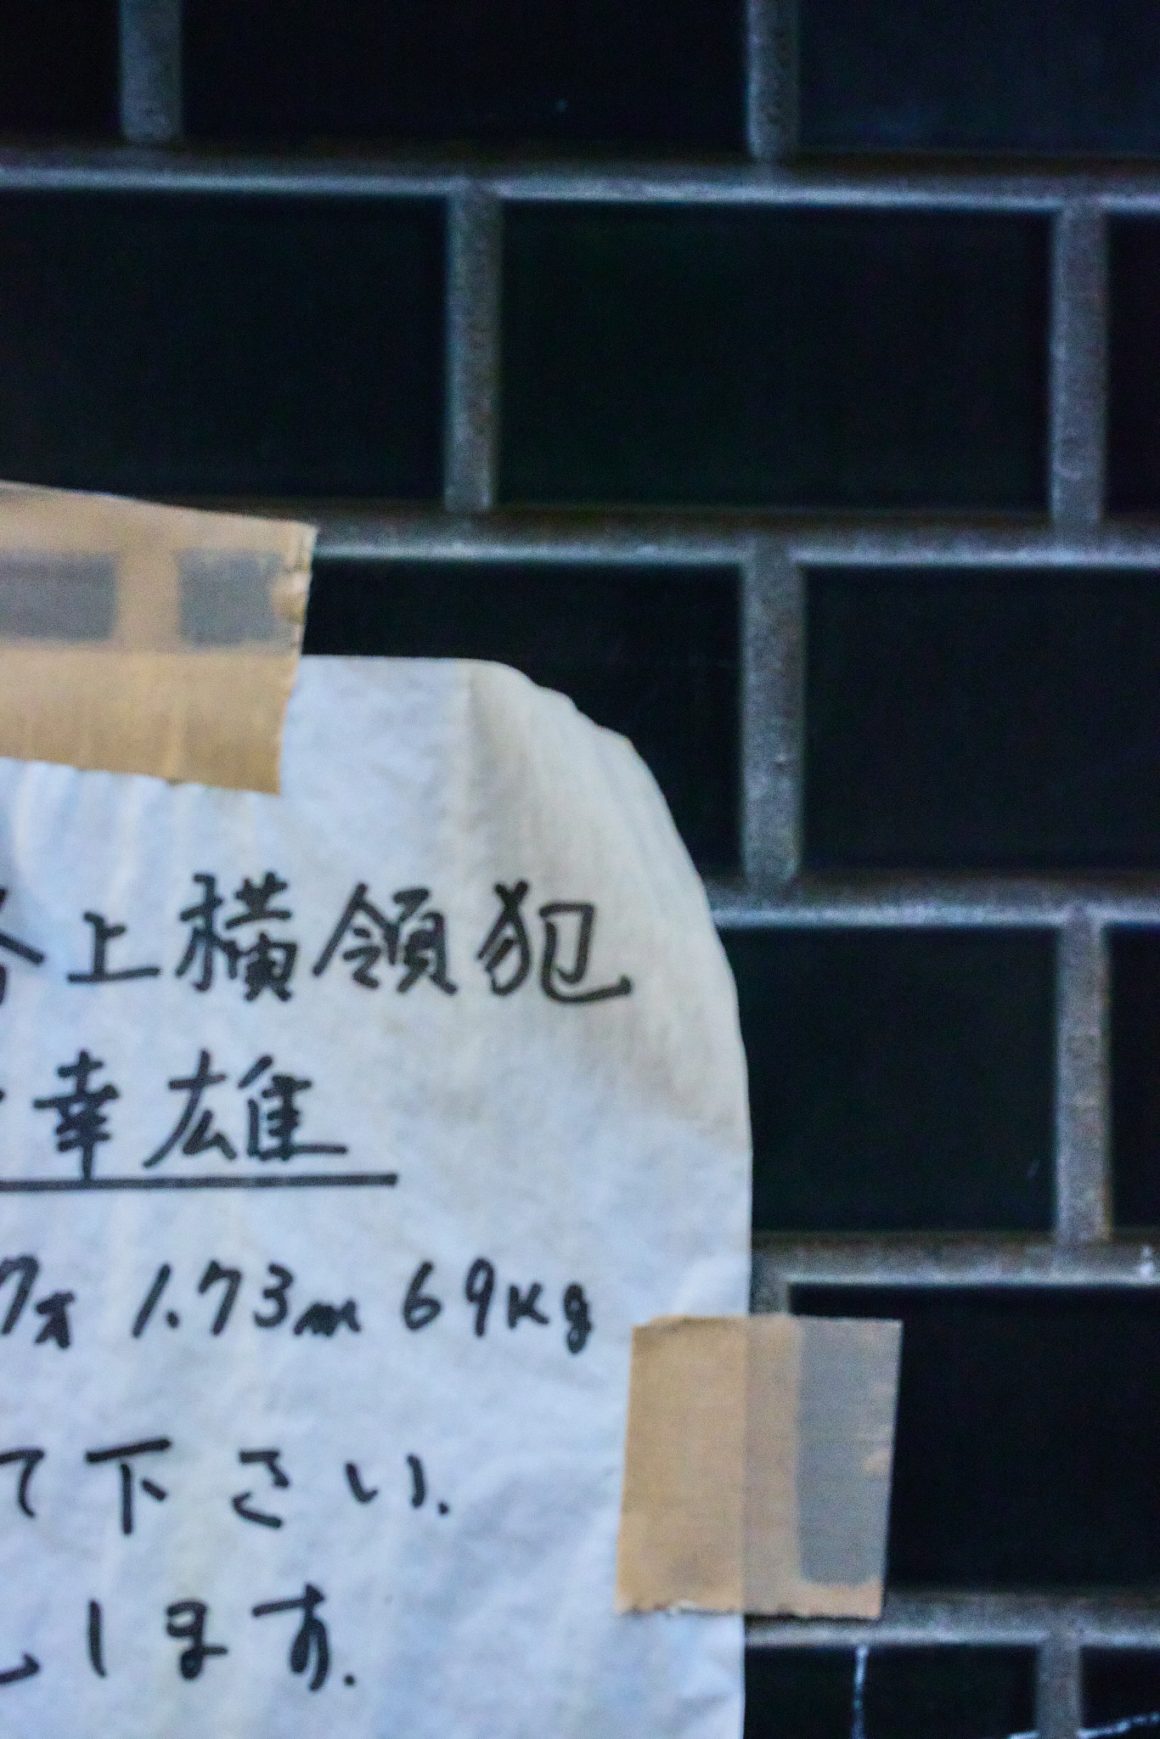 上横領犯
幸雄
7才 1.73m 69Kg
て下さい.
します.